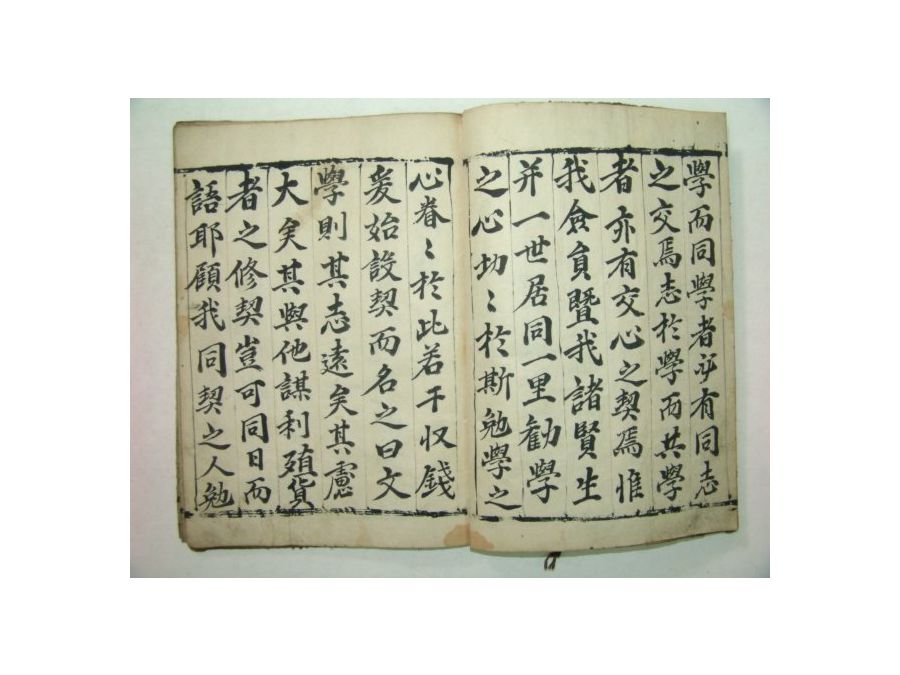 學而同學者必有同志
之交焉志於學而共學
者亦有交心之契焉惟
我僉員曁我諸賢生
并一世居同一里勸學
之心切〻於斯勉學之
心眷〻於此若干収錢
爰始設契而名之曰文
學則其志遠矣其慮
大矣其與他謀利殖貨
者之修契豈可同日而
語耶顧我同契之人勉